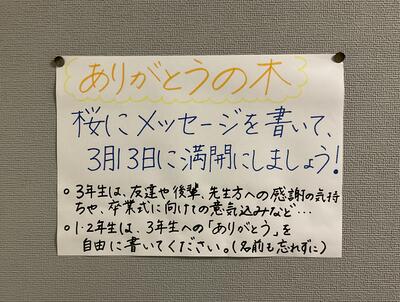 ありがとうの木
桜にメッセージを書いて、
3月13日に満開にしましょう!
○3年生は、友達や後輩、先生方への感謝の気持
ちや、卒業式に向けての意気込みなど…
○1・2年生は、3年生への「ありがとう」を
自由に書いてください。(名前も忘れずに)